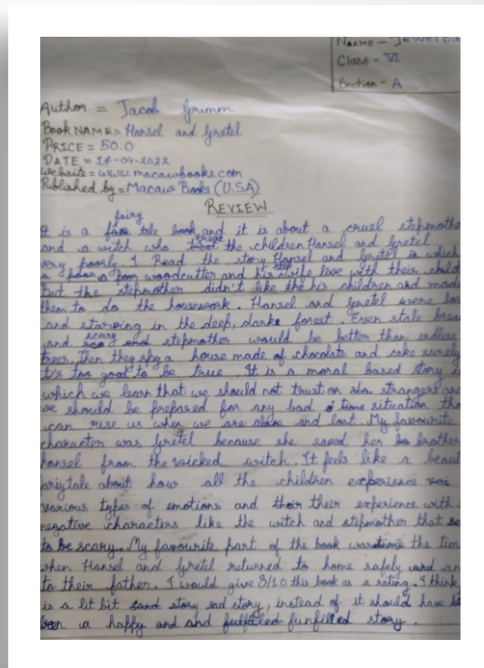 NAAME - Jewel
Class - VI
Section - A
Author = Jacob Grimm
Book NAME = Hansel and Gretel
PRICE = 50.0
DATE = 14-04-2022
website = www.macawbooks.com
Published by = Macaw Books (U.S.A)
REVIEW
It is a fairy tale book and it is about a cruel stepmothe
and a witch who treat the children Hansel and Gretel
very poorly. I Read the story Hansel and Gretel in which
a poor woodcutter and his wife live with their child
But the stepmother didn't like the his children and made
them to do the housework. Hansel and Gretel were los
and starving in the deep, dark forest. Even stale brea
and scary stepmother would be better than endless
trees. Then they spy a house made of chocolate and cake surely
it's too good to be true It is a moral based story
which we learn that we should not trust on strangers an
we should be prepared for any bad time situation tha
can rise us when we are alone and lost. My favourite
character was Gretel because she saved her brother
hansel from the wicked witch. It feels like a beaut
ariytale about how all the children experience
various types of emotions and their experience with
negative characters like the witch and stepmother that
to be scary. My favourite part of the book was the time
when Hansel and Gretel returned to home safely and
to their father. I would give 8/10 this book as a rating. I think
is a lit bit sad story, instead of it should have
been a happy and funfilled story.